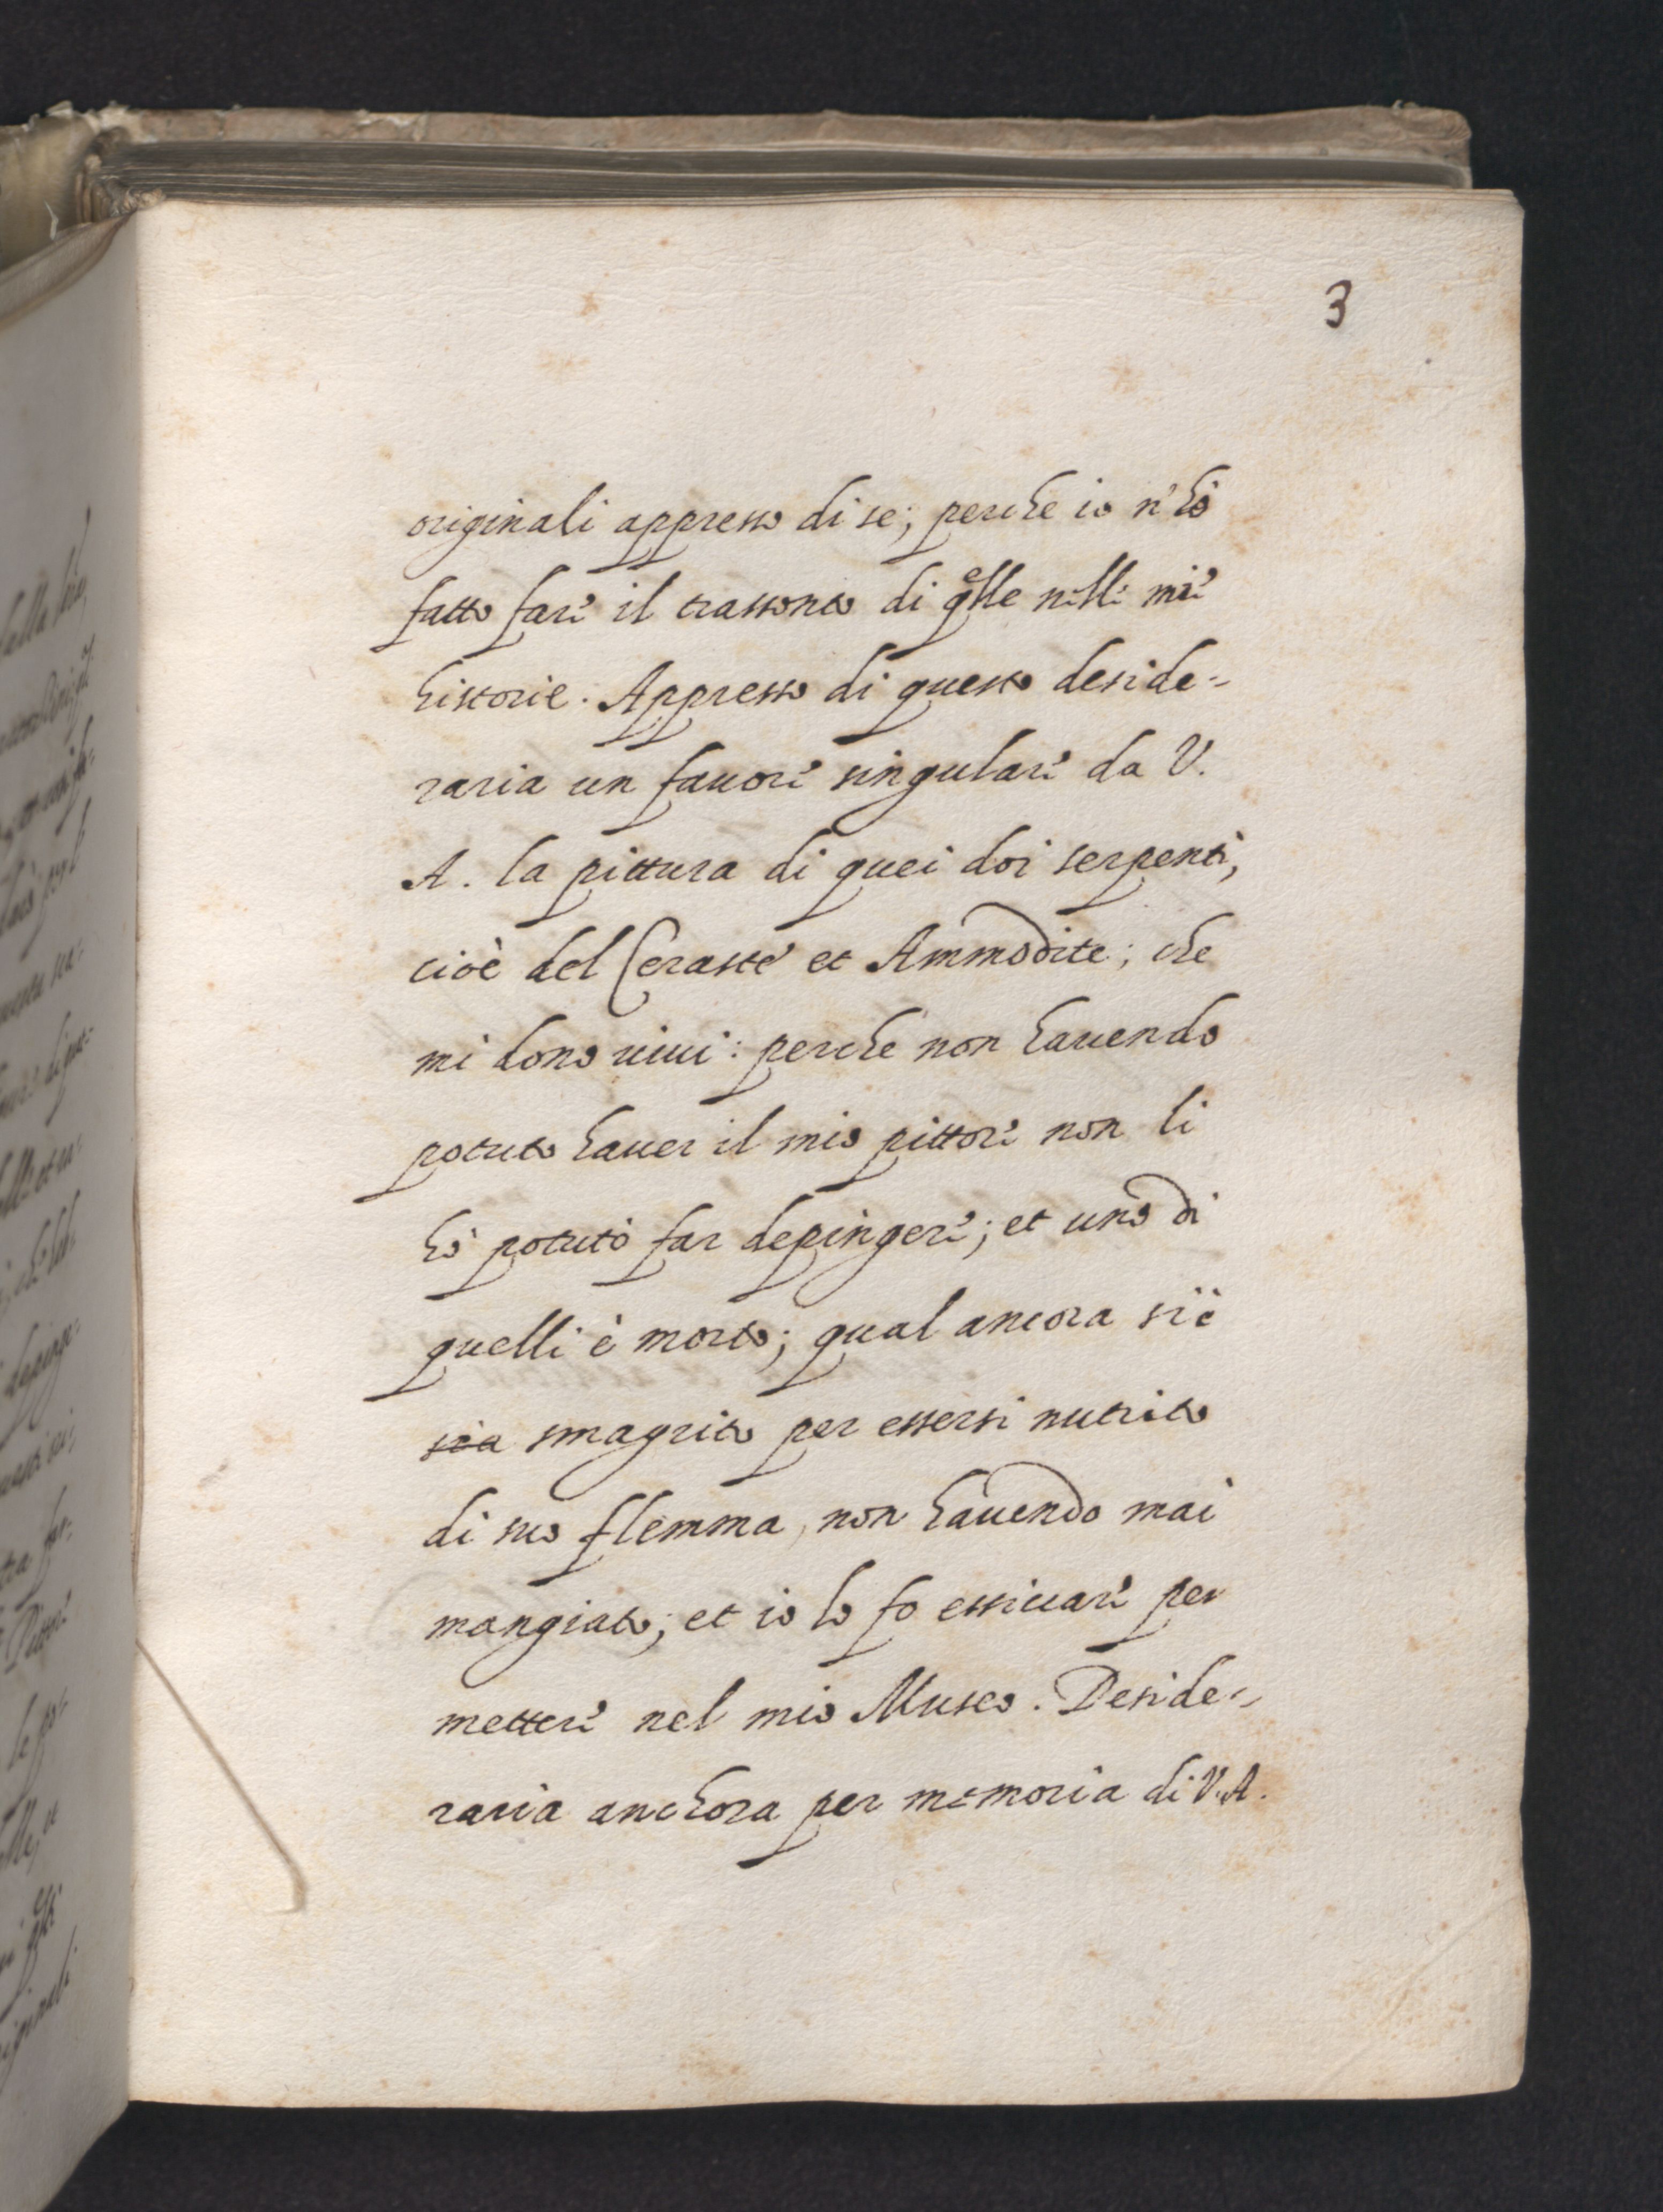 3
originali appresso di se; perche io n'hò
fatto fare il trassonto di qelle nelle mie
historie. Appresso di questo deside=
raria un favore singulare da V.
A. la pittura di quei doi serpenti,
cioè del Ceraste et Ammodite; che
mi dono vivi: perche non havendo
potuto haver il mio pittore non li
hò potutò far depingere; et uno di
quelli è morto; qual ancora si è
sia smagrito per essersi nutrito
di suo flemma, non havendo mai
mangiato; et io lo fo essiccare per
mettere nel mio Museo. Deside=
raria anchora per memoria di V.A.